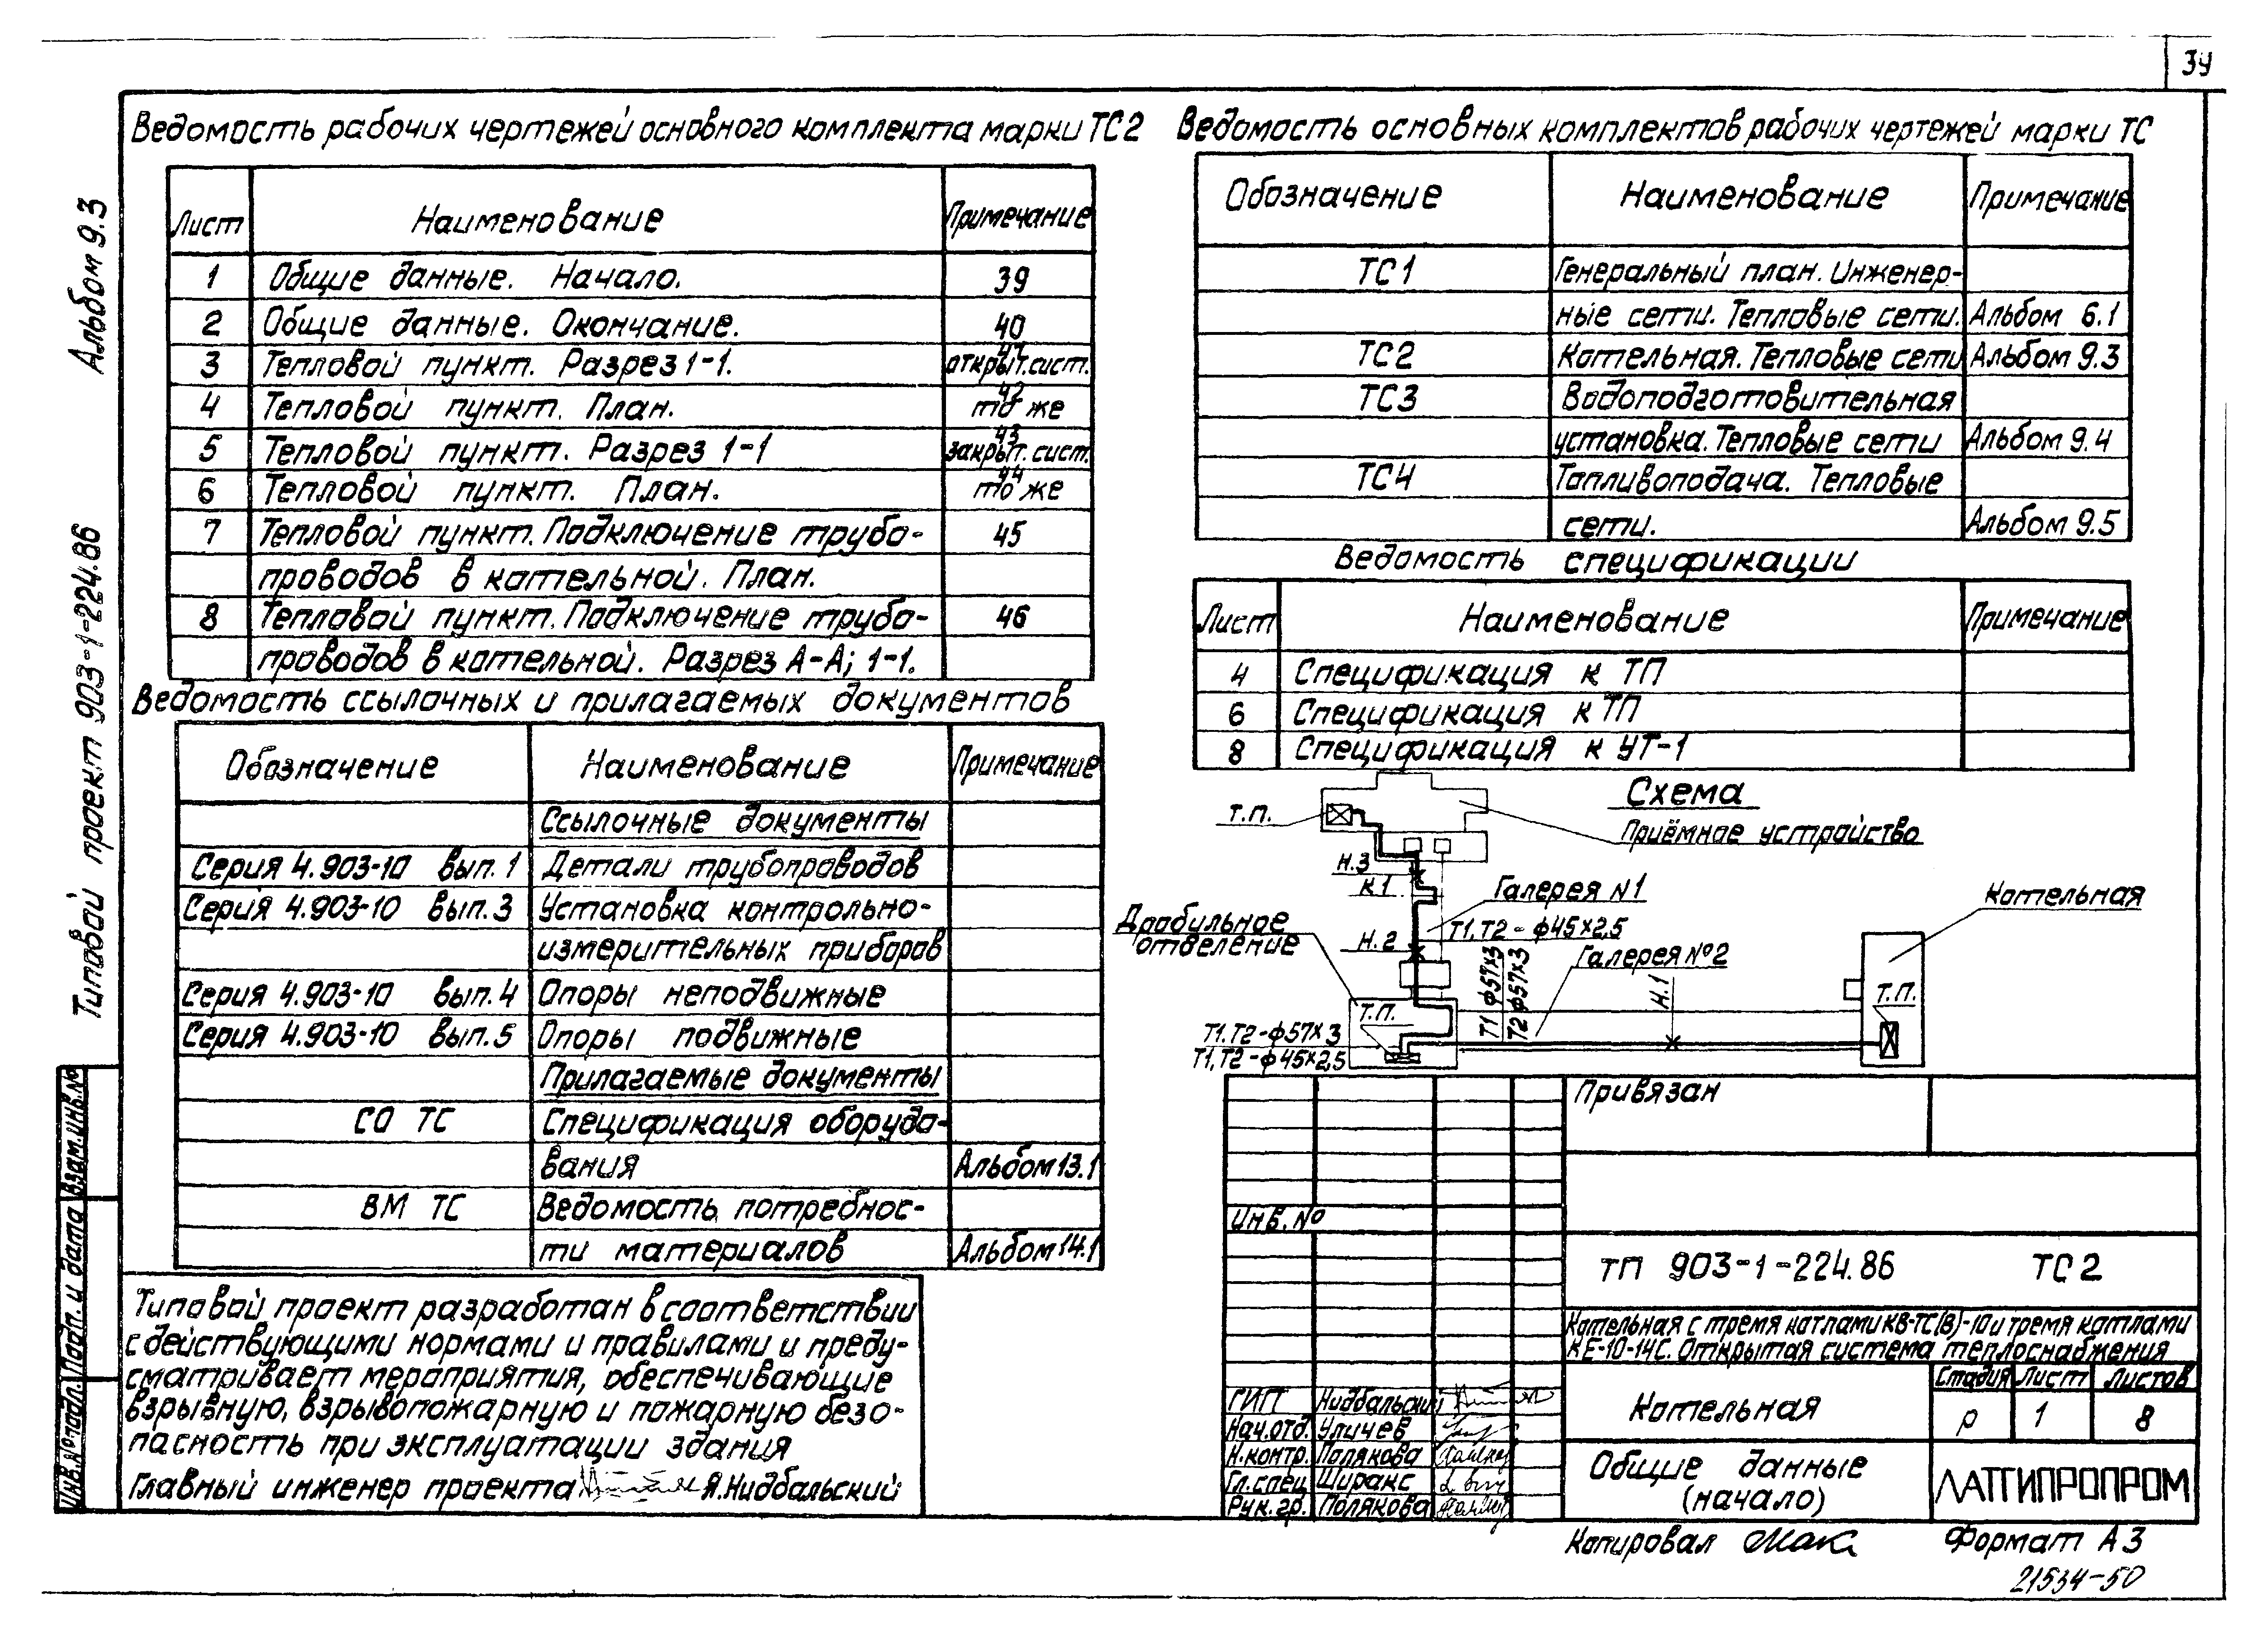 39
Альбом 9.3
Типовой проект 903-1-224.86
Ведомость рабочих чертежей основного комплекта марки ТС2
Лист Наименование Примечание
1 Общие данные. Начало. 39
2 Общие данные. Окончание. 40
3 Тепловой пункт. Разрез 1-1. 41 открыт. сист.
4 Тепловой пункт. План. 42 то же
5 Тепловой пункт. Разрез 1-1 43 закрыт. сист.
6 Тепловой пункт. План. 44 то же
7 Тепловой пункт. Подключение трубо- 45
проводов в котельной. План.
8 Тепловой пункт. Подключение трубо- 46
проводов в котельной. Разрез А-А; 1-1.
Ведомость ссылочных и прилагаемых документов
Обозначение Наименование Примечание
Ссылочные документы
Серия 4.903-10 вып. 1 Детали трубопроводов
Серия 4.903-10 вып. 3 Установка контрольно-
измерительных приборов
Серия 4.903-10 вып. 4 Опоры неподвижные
Серия 4.903-10 вып. 5 Опоры подвижные
Прилагаемые документы
СО ТС Спецификация оборудо-
вания Альбом 13.1
ВМ ТС Ведомость потребнос-
ти материалов Альбом 14.1
Типовой проект разработан в соответствии
с действующими нормами и правилами и преду-
сматривает мероприятия, обеспечивающие
взрывную, взрывопожарную и пожарную безо-
пасность при эксплуатации здания
Главный инженер проекта Я.Нидбальский
Инв.№ подл. Подп. и дата Взам.инв.№
Ведомость основных комплектов рабочих чертежей марки ТС
Обозначение Наименование Примечание
ТС1 Генеральный план. Инженер-
ные сети. Тепловые сети. Альбом 6.1
ТС2 Котельная. Тепловые сети Альбом 9.3
ТС3 Водоподготовительная
установка. Тепловые сети Альбом 9.4
ТС4 Топливоподача. Тепловые
сети. Альбом 9.5
Ведомость спецификации
Лист Наименование Примечание
4 Спецификация к ТП
6 Спецификация к ТП
8 Спецификация к УТ-1
Схема
Т.П.
Приёмное устройство
Н.3
К.1
Галерея N1
Котельная
Дробильное
отделение
Н.2
Т1,Т2-ф45×2,5
Галерея №2
Т1 ф57×3
Т2 ф57×3
Н.1
Т.П.
Т.П.
Т1.Т2-ф57×3
Т1,Т2-ф45×2,5
Привязан
Инв.№
ТП 903-1-224.86 ТС2
Котельная с тремя котлами КВ-ТС(В)-10 и тремя котлами
КЕ-10-14С. Открытая система теплоснабжения
Котельная
Стадия Лист Листов
Р 1 8
Общие данные
(начало)
ЛАТГИПРОПРОМ
ГИП Нидбальский
Нач.отд. Уличев
Н.контр. Полякова
Гл.спец. Ширакс
Рук.гр. Полякова
Копировал Формат А3
21534-50